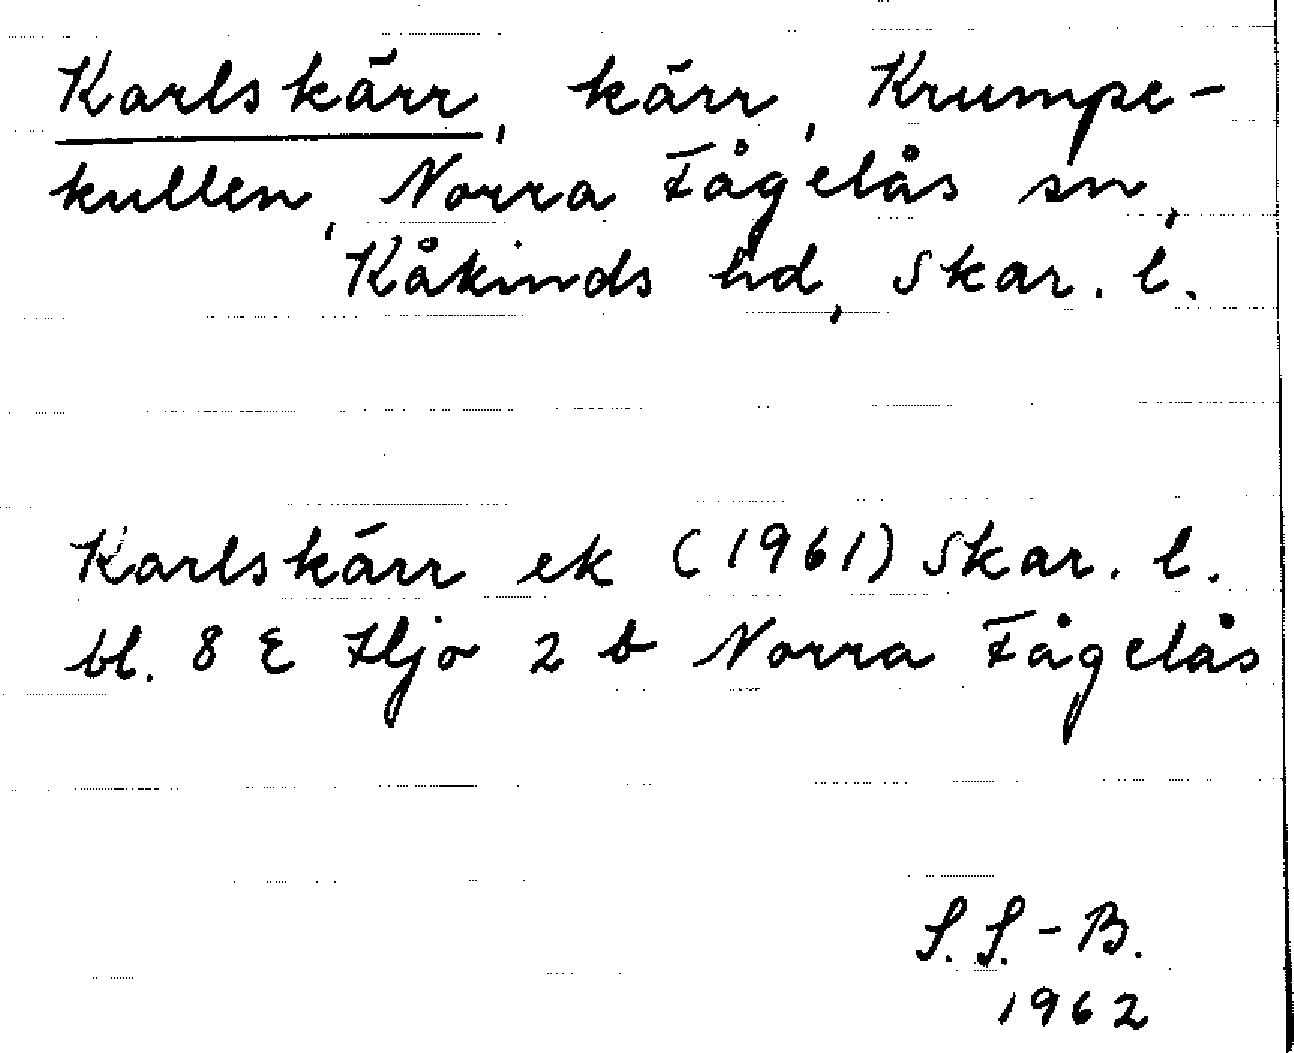 Karlskärr, kärr, Krumpe-
kullen, Norra Fågelås sn,
Kåkinds hd, Skar. l.
Karlskärr ek (1961) Skar. l.
bl. 8 E Hjo 2 b Norra Fågelås
S. S.-B.
1962